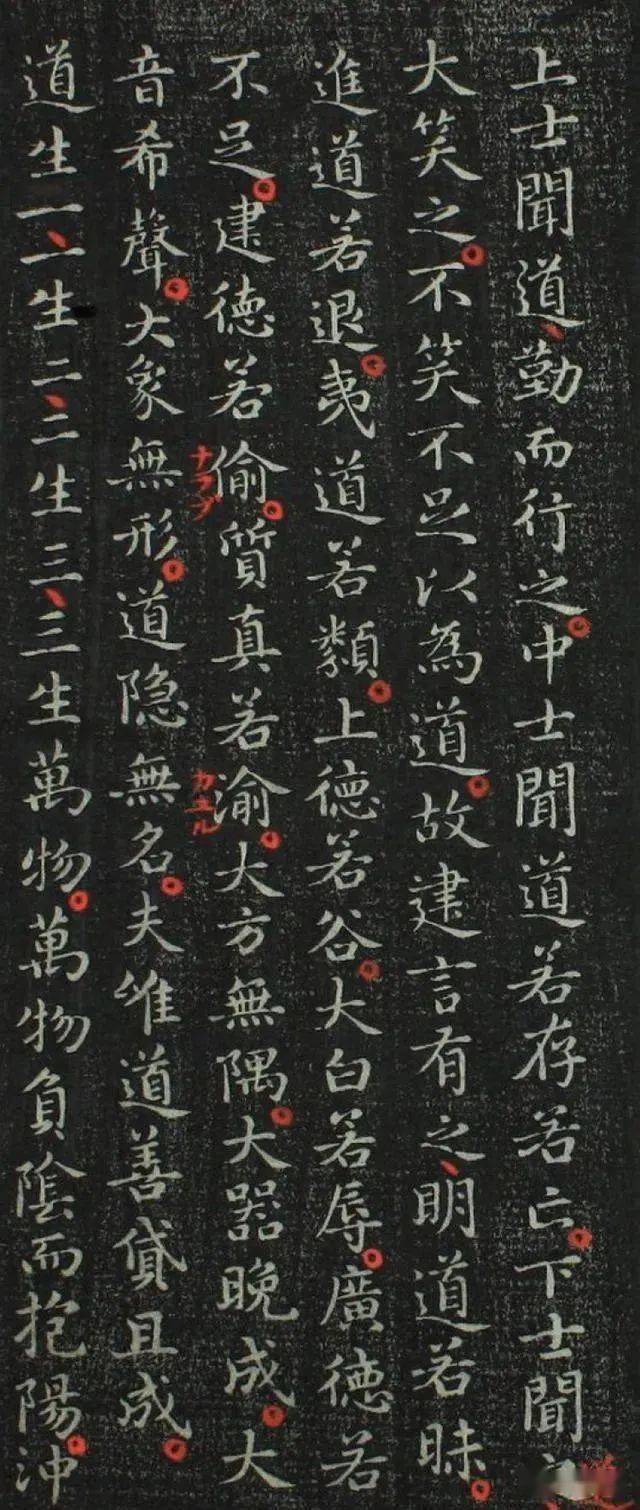 上士聞道、勤而行之。中士聞道若存若亡。下士聞
大笑之。不笑不足以為道。故建言有之、明道若昧。
進道若退。夷道若類。上德若谷。大白若辱。廣德若
不足。建德若偷。質真若渝。大方無隅。大器晚成。大
ナラブ
カエル
音希聲。大象無形。道隐無名。夫唯道善貸且成。
道生一、一生二、二生三、三生萬物。萬物負陰而抱陽。沖